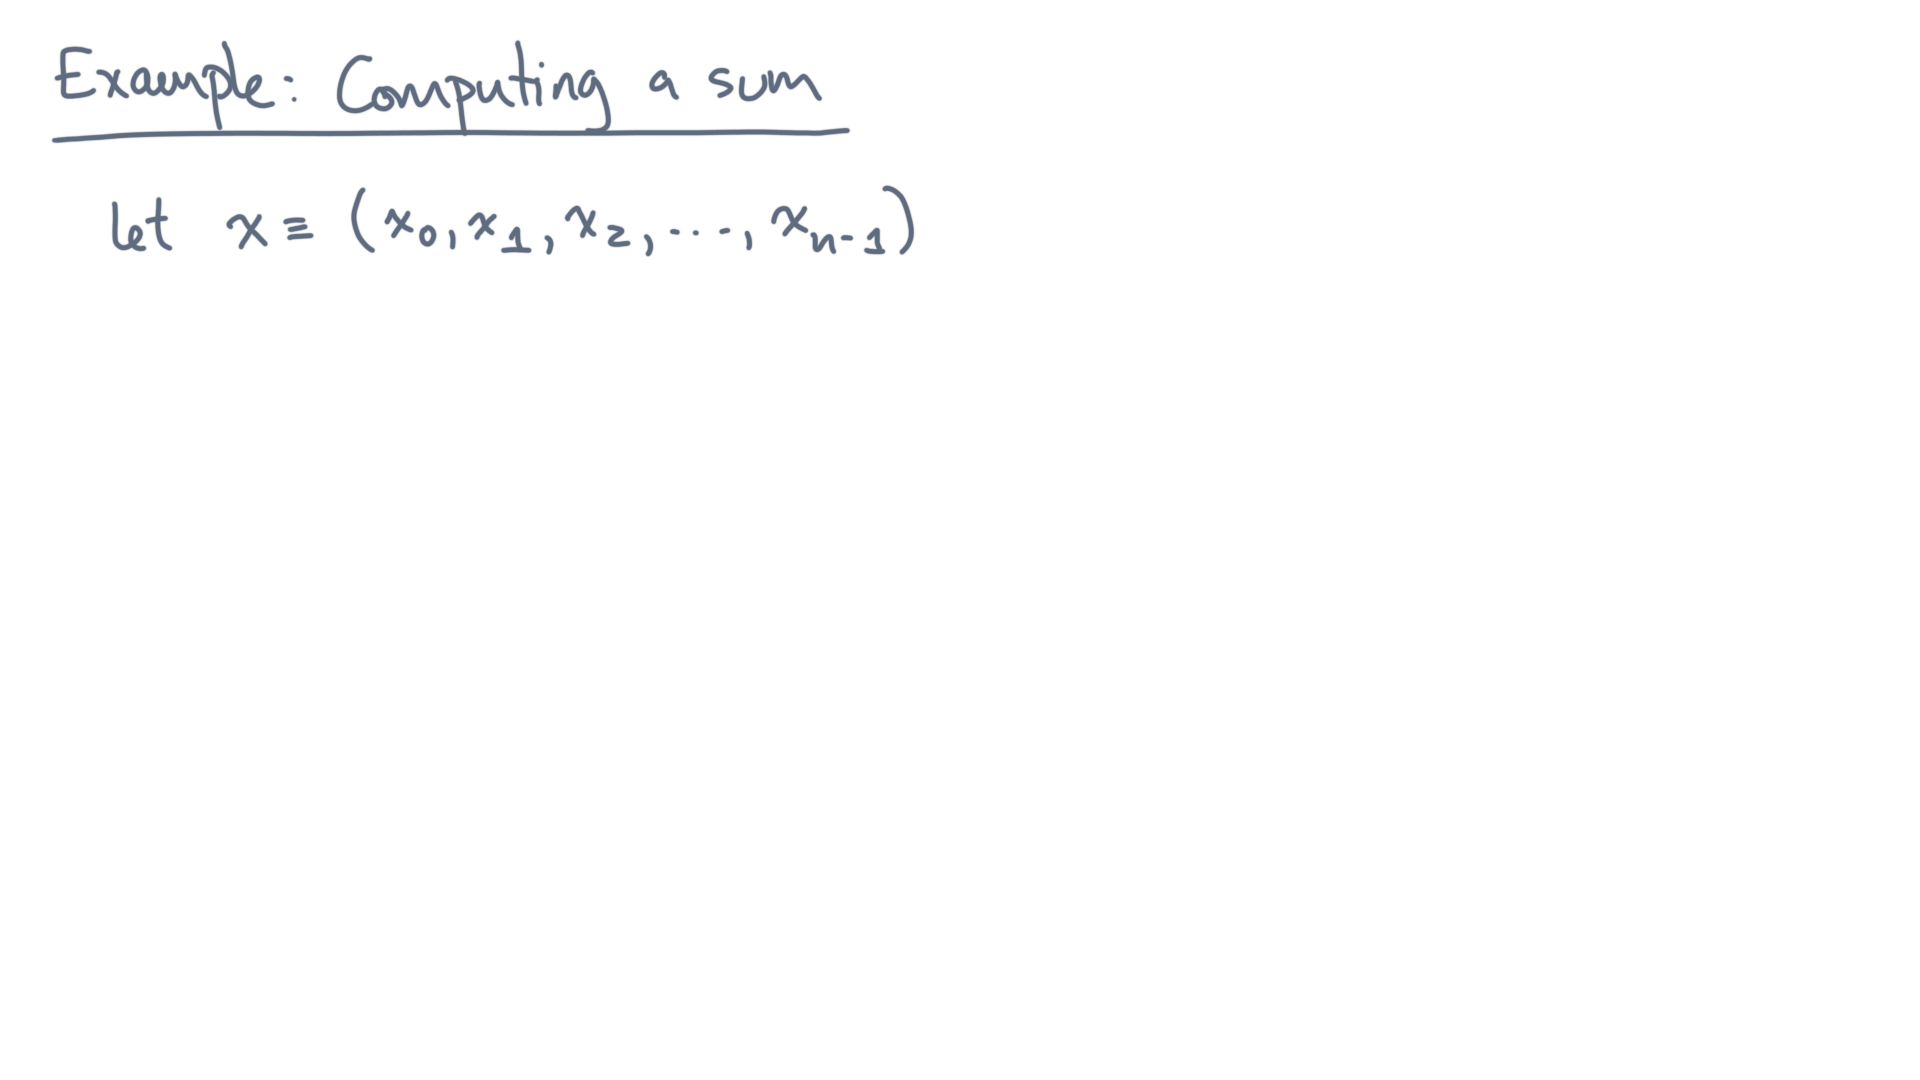 Example: Computing a sum
let x ≡ (x₀, x₁, x₂, ..., xₙ₋₁)